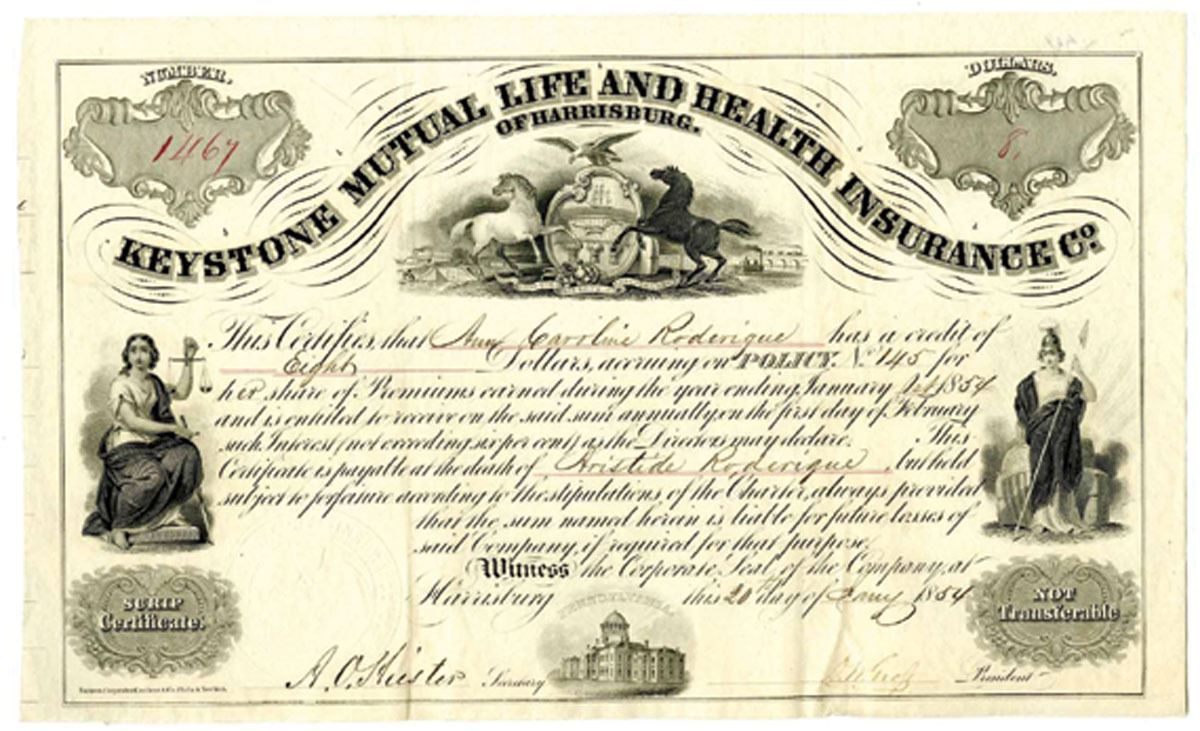 NUMBER.
1467
DOLLARS.
8,
KEYSTONE MUTUAL LIFE AND HEALTH INSURANCE Co.
OF HARRISBURG.
This Certifies, that Ann Caroline Roderique has a credit of
Eight Dollars, accruing on POLICY. No. 145 for
her share of Premiums earned during the year ending January 1st 1854
and is entitled to receive on the said sum annually on the first day of February
such Interest (not exceeding six per cent) as the Directors may declare. This
Certificate is payable at the death of Aristide Roderique, but held
subject to forfaiture according to the stipulations of the Charter, always provided
that the sum named herein is liable for future losses of
said Company, if required for that purpose.
Witness the Corporate Seal of the Company, at
Harrisburg this 20 day of Jany 1854
SCRIP
Certificate.
PENNSYLVANIA.
NOT
Transferable
A.O. Hiester Secretary
President